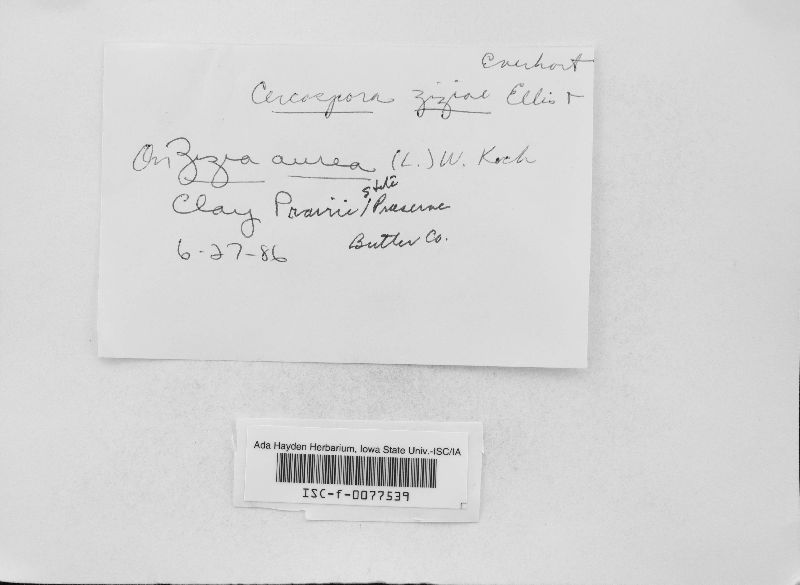 Everhart
Cercospora ziziae Ellis &
On Zizia aurea (L.) W. Koch
state
Clay Prairie / Preserve
6-27-86 Butler Co.
Ada Hayden Herbarium, Iowa State Univ.-ISC/IA
ISC-f-0077539